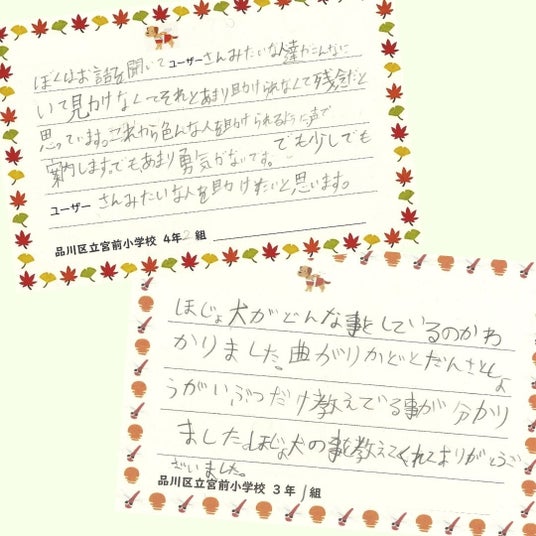 ぼくはお話を聞いてユーザーさんみたいな人達がこんなに
いて見かけなくてそれとあまり助けられなくて残念だと
思っています。これから色んな人を助けられるように声で
案内します。でもあまり勇気がないです。でも少しでも
ユーザーさんみたいな人を助けたいと思います。
品川区立宮前小学校 4年2組
ほじょ犬がどんな事をしているのかわ
かりました。曲がりかどとだんさとしょ
うがいぶつだけ教えている事が分かり
ました。ほじょ犬の事を教えてくれてありがとうご
ざいました。
品川区立宮前小学校 3年1組